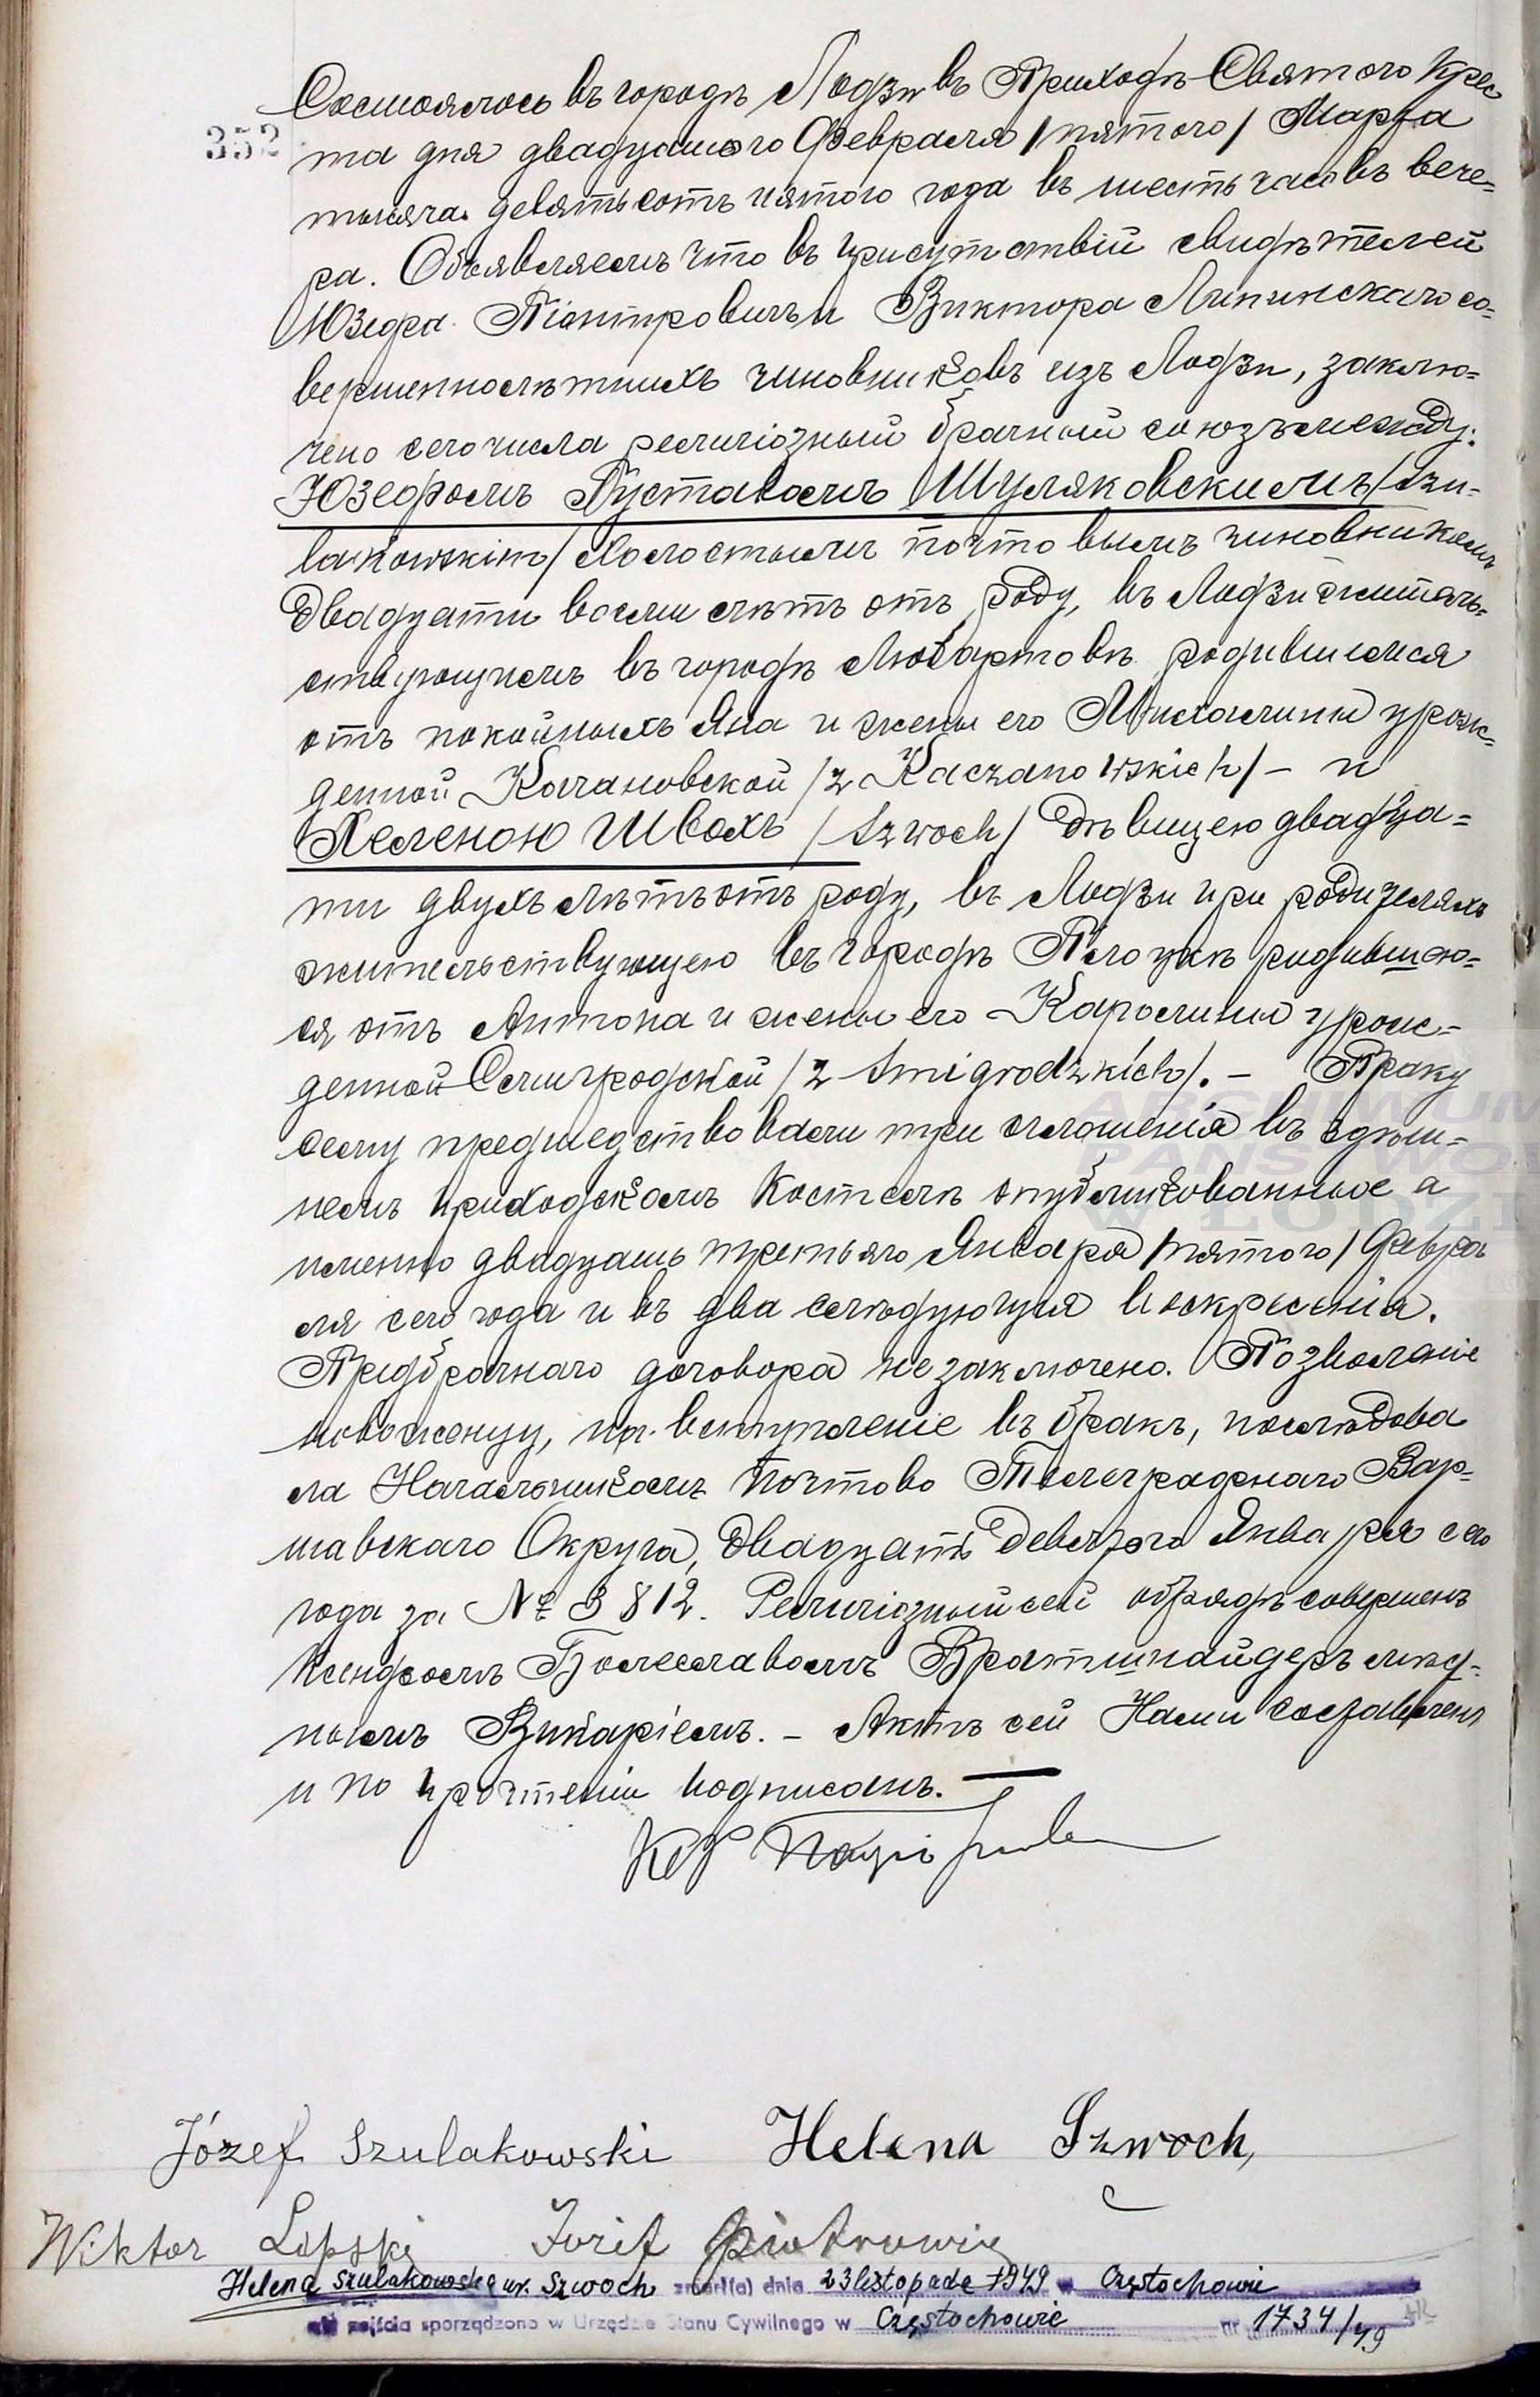 352
Состоялось въ городѣ Лодзи въ Приходѣ Святого Крес
та дня двадцатого Февраля /пятого/ Марта
тысяча девятьсотъ пятого года въ шесть часовъ вече=
ра. Объявляемъ что въ присутствіи свидѣтелей
Юзефа Піотровичъ и Виктора Липинскаго со=
вершеннолѣтнихъ чиновниковъ изъ Лодзи, заклю=
чено сего числа религіозный брачный союзъ между:
Юзефомъ Густавомъ Шуляковскимъ /Szu=
lakowskim/ холостымъ почтовымъ чиновникомъ
двадцати восьми лѣтъ отъ роду, въ Лодзи житель=
ствующимъ въ городѣ Любартовѣ родившимся
отъ покойныхъ Яна и жены его Михалины урож=
денной Качановской /z Kaczanowskich/ – и
Хеленою Швохъ /Szwoch/ дѣвицею двадца=
ти двухъ лѣтъ отъ роду, въ Лодзи при родителяхъ
жительствующею въ городѣ Плоцкѣ родившею=
ся отъ Антона и жены его Каролины урож=
денной Смигродской /z Smigrodzkich/. – Браку
сему предшествовали три оглашенія въ здѣш=
немъ приходскомъ Костелѣ опубликованные а
именно двадцать третьяго Января /пятого/ Февра
ля сего года и въ два слѣдующія воскресенія.
Предбрачнаго договора не заключено. Позволеніе
новоженцу, на вступленіе въ бракъ, послѣдова
ла Начальникомъ Почтово Телеграфнаго Вар=
шавскаго Округа, двадцать девятого Января сего
года за № 3812. Религіозный сей обрядъ совершенъ
Ксендзомъ Болеславомъ Вратшнайдеръ мѣст=
нымъ Викаріемъ. – Актъ сей Нами составленъ
и по прочтеніи подписанъ. —
Józef Szulakowski Helena Szwoch
Wiktor Lipski Józef Piotrowicz
Helena Szulakowska ur. Szwoch zmarł(a) dnia 23 listopada 1949 w Częstochowie
zejścia sporządzono w Urzędzie Stanu Cywilnego w Częstochowie nr 1734/49
ARCHIWUM
PAŃSTWOW
W ŁODZI